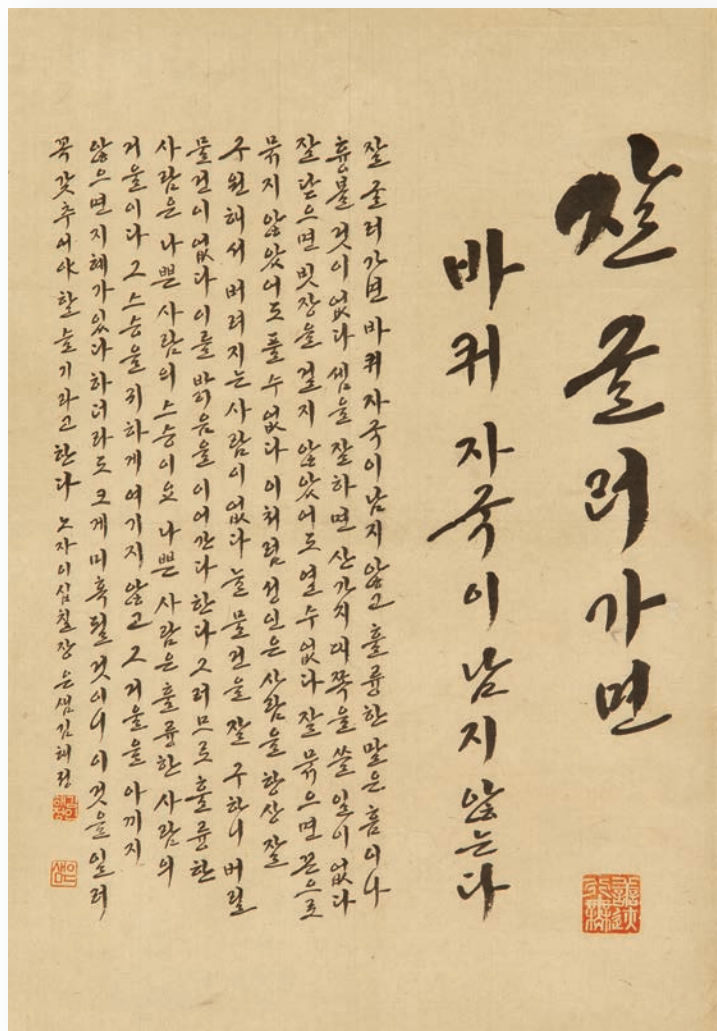 잘 굴러가면
바퀴 자국이 남지 않는다
잘 굴러가면 바퀴 자국이 남지 않고 훌륭한 말은 흠이나
흉볼 것이 없다 셈을 잘하면 산가지 대쪽을 쓸 일이 없다
잘 닫으면 빗장을 걸지 않았어도 열 수 없다 잘 묶으면 끈으로
묶지 않았어도 풀 수 없다 이처럼 성인은 사람을 항상 잘
구원해서 버려지는 사람이 없다 늘 물건을 잘 구하니 버릴
물건이 없다 이를 밝음을 이어간다 한다 그러므로 훌륭한
사람은 나쁜 사람의 스승이요 나쁜 사람은 훌륭한 사람의
거울이다 그 스승을 귀하게 여기지 않고 그 거울을 아끼지
않으면 지혜가 있다 하더라도 크게 미혹될 것이니 이것을 일러
꼭 갖추어야 할 슬기라고 한다 노자 이십칠장 은샘 김해정
은샘